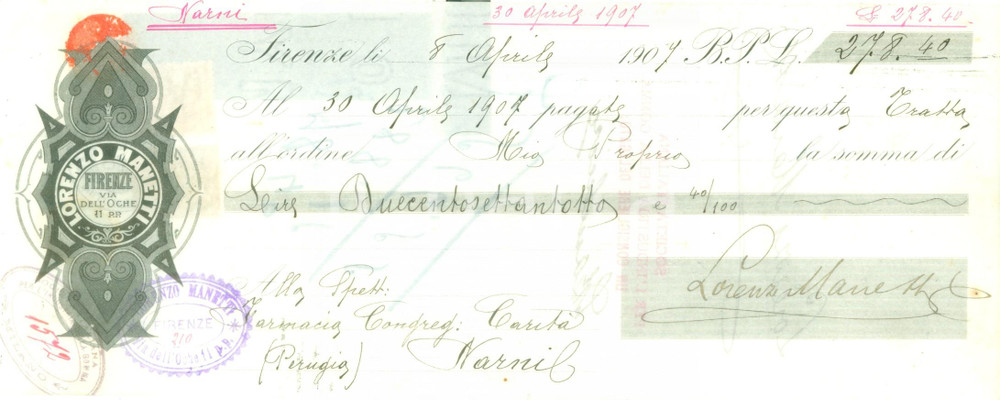 Narni 30 Aprile 1907 £ 278.40
Firenze li 8 Aprile 1907 B.P.L. 278.40
Al 30 Aprile 1907 pagate per questa Tratta
all'ordine Mio Proprio la somma di
Lire Duecentosettantotto e 40/100
Lorenzo Manetti
Alla Spett:
Farmacia Congreg: Carità
(Perugia) Narni
LORENZO MANETTI
FIRENZE
VIA
DELL'OCHE
11 RR
LORENZO MANETTI
FIRENZE
210